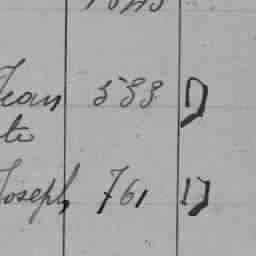 Jean 533 D
te
Joseph 761 D